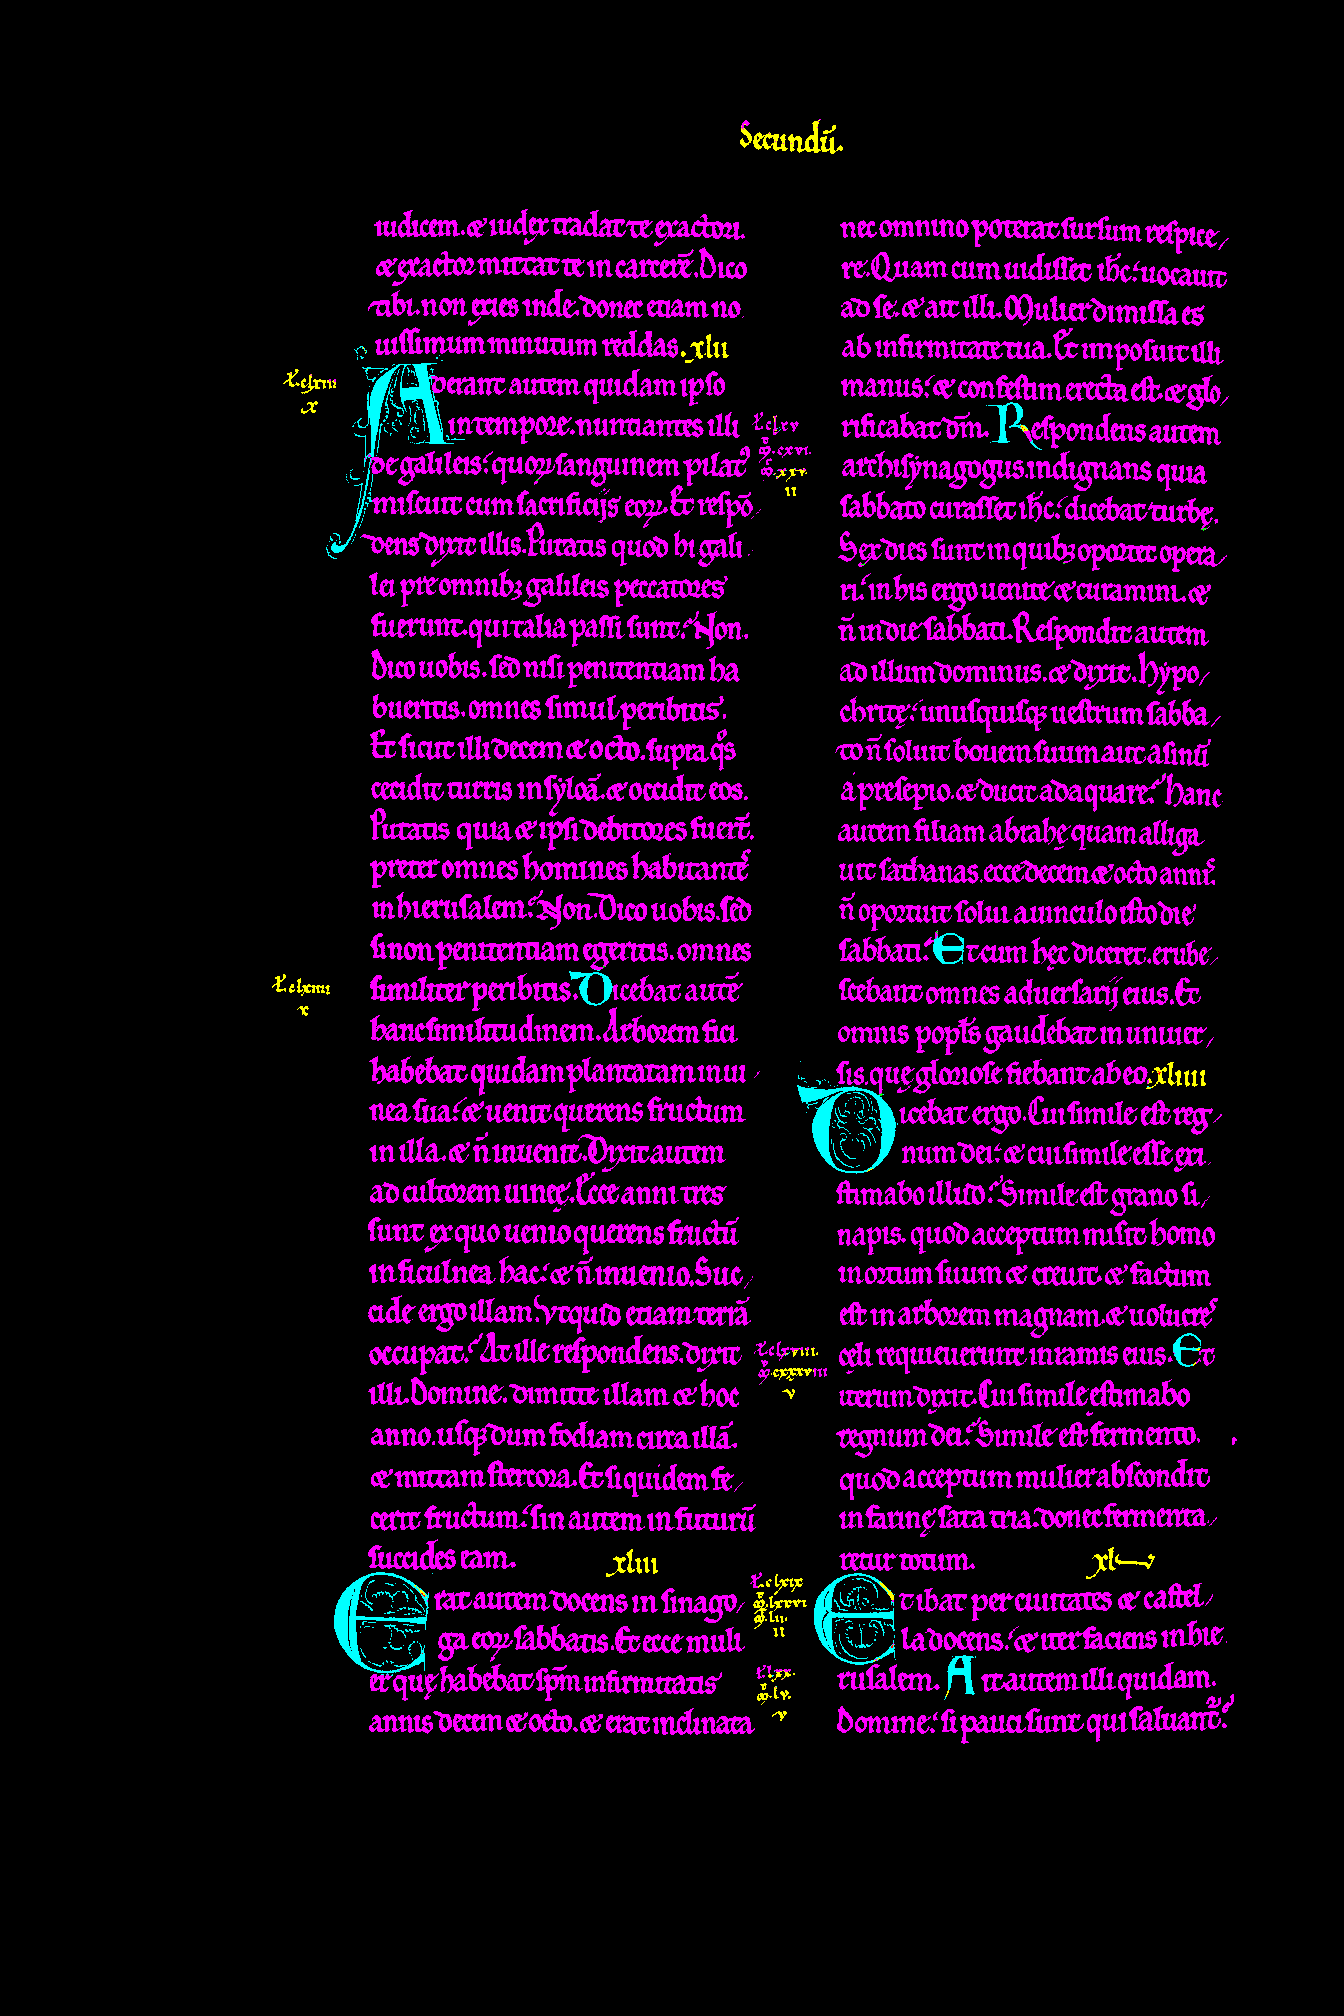 Secundū.
iudicem. & iudex tradat te exactori.
& exactor mittat te in carcerē. Dico
tibi. non exies inde. donec etiam no
uissimum minutum reddas. xlii
Aderant autem quidam ipso
in tempore. nuntiantes illi
de galileis: quoꝝ sanguinem pilatꝰ
miscuit cum sacrificijs eoꝝ. Et respō
dens dixit illis. Putatis quod hi gali
lei pre omnibꝫ galileis peccatores
fuerunt. qui talia passi sunt? Non.
Dico uobis. sed nisi penitentiam ha
bueritis. omnes simul peribitis.
Et sicut illi decem & octo. supra qͦs
cecidit turris in sÿloā. & occidit eos.
Putatis quia & ipsi debitores fuer̄t.
preter omnes homines habitantes
in hierusalem? Non. Dico uobis. sed
si non penitentiam egeritis. omnes
similiter peribitis. Dicebat autē
hanc similitudinem. Arborem fici
habebat quidam plantatam in ui
nea sua: & uenit querens fructum
in illa. & n̄ inuenit. Dixit autem
ad cultorem uineę. Ecce anni tres
sunt ex quo uenio querens fructū
in ficulnea hac: & n̄ inuenio. Suc
cide ergo illam. Vtquid etiam terrā
occupat? At ille respondens. dixit
illi. Domine. dimitte illam & hoc
anno. usqꝫ dum fodiam circa illā.
& mittam stercora. Et siquidem fe
cerit fructum: sin autem in futurū
succides eam. xliii
Erat autem docens in sinago
ga eoꝝ sabbatis. Et ecce muli
er quę habebat sp̄m infirmitatis
annis decem & octo. & erat inclinata
nec omnino poterat sursum respice
re. Quam cum uidisset ih̄c: uocauit
ad se. & ait illi. Mulier dimissa es
ab infirmitate tua. Et imposuit illi
manus: & confestim erecta est. & glo
rificabat dm̄. Respondens autem
archisÿnagogus. indignans quia
sabbato curasset ih̄c: dicebat turbę.
Sex dies sunt in quibꝫ oportet opera
ri: in his ergo uenite & curamini. &
n̄ in die sabbati. Respondit autem
ad illum dominus. & dixit. Hÿpo
chritę: unusquisqꝫ uestrum sabba
to n̄ soluit bouem suum aut asinū
a presepio. & ducit adaquare? hanc
autem filiam abrahę quam alliga
uit sathanas. ecce decem & octo annis.
n̄ oportuit solui a uinculo isto die
sabbati? Et cum hęc diceret. erube
scebant omnes aduersarij eius. Et
omnis popl̄s gaudebat in uniuer
sis. quę gloriose fiebant ab eo. xliiii
Dicebat ergo. Cui simile est reg
num dei: & cui simile esse exi
stimabo illud? Simile est grano si
napis. quod acceptum misit homo
in ortum suum & creuit & factum
est in arborem magnam. & uolucres
cęli requieuerunt in ramis eius. Et
iterum dixit. Cui simile estimabo
regnum dei? Simile est fermento.
quod acceptum mulier abscondit
in farinę sata tria. donec fermenta
retur totum. xlv
Et ibat per ciuitates & castel
la docens: & iter faciens in hie
rusalem. Ait autem illi quidam.
Domine: si pauci sunt qui saluant᷑?